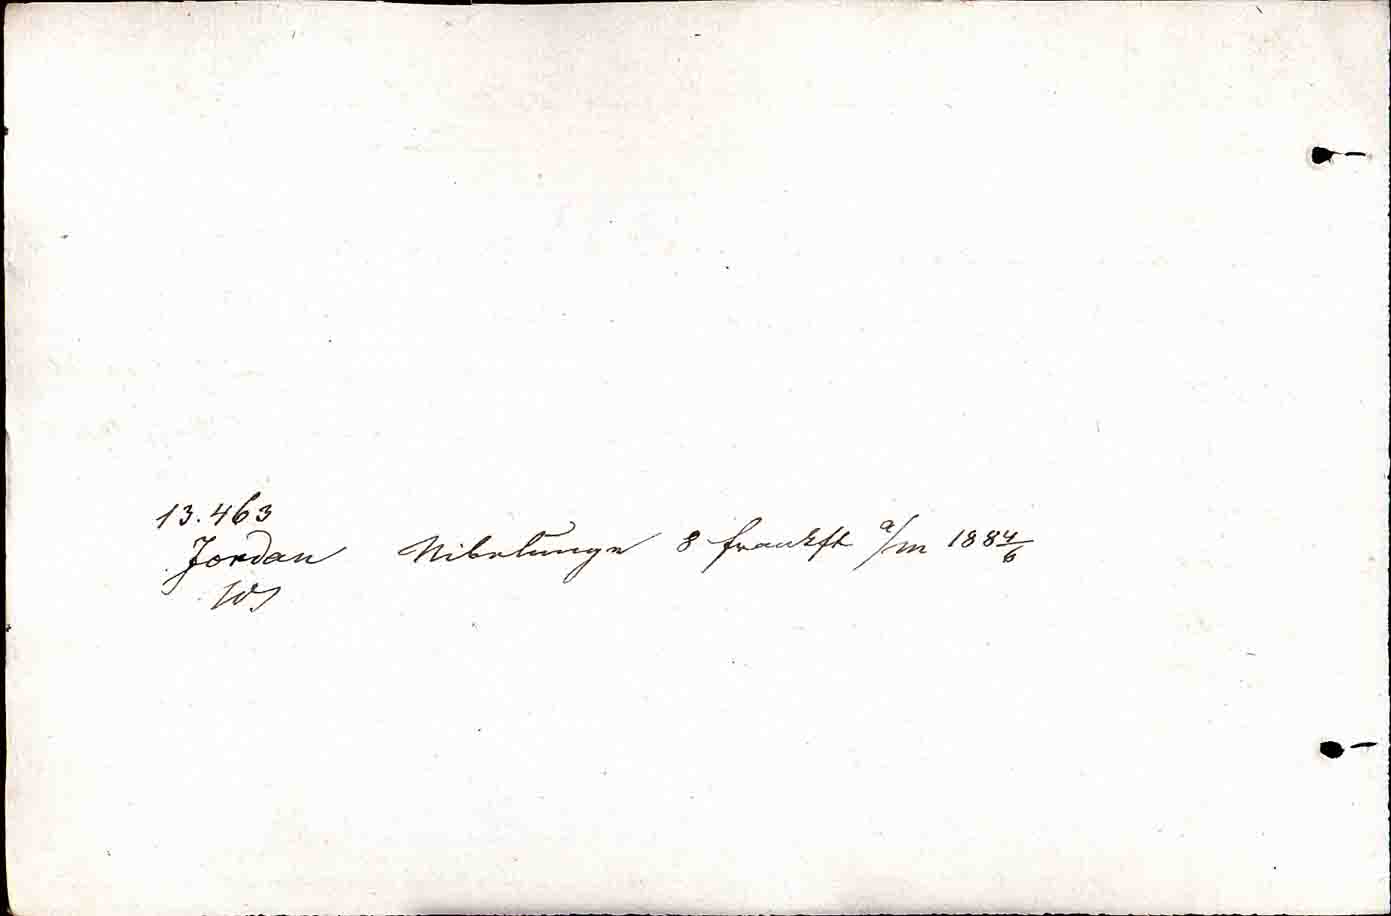 13.463
Jordan Nibelunge 8 Frankft a/m 1884/6